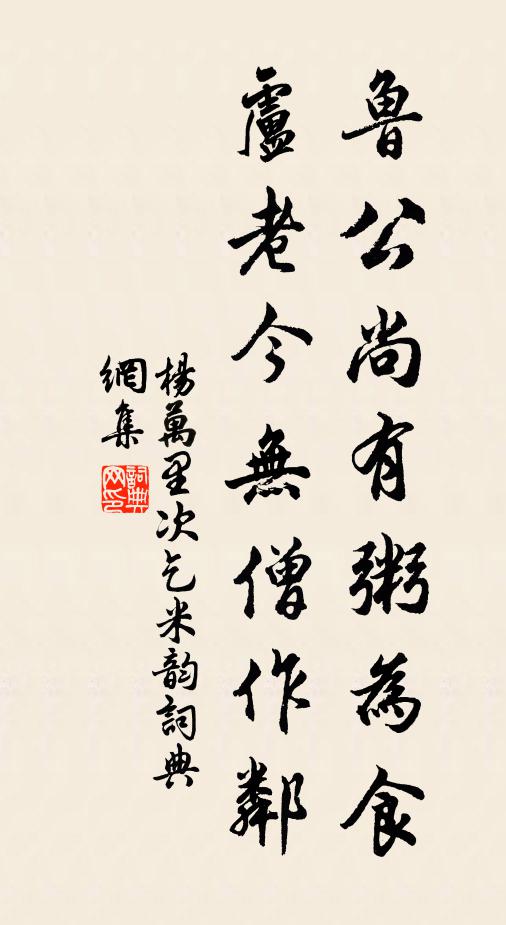 魯公尚有粥為食
盧老今無僧作鄰
楊萬里次乞米韵詞典
網集
詞典
网印